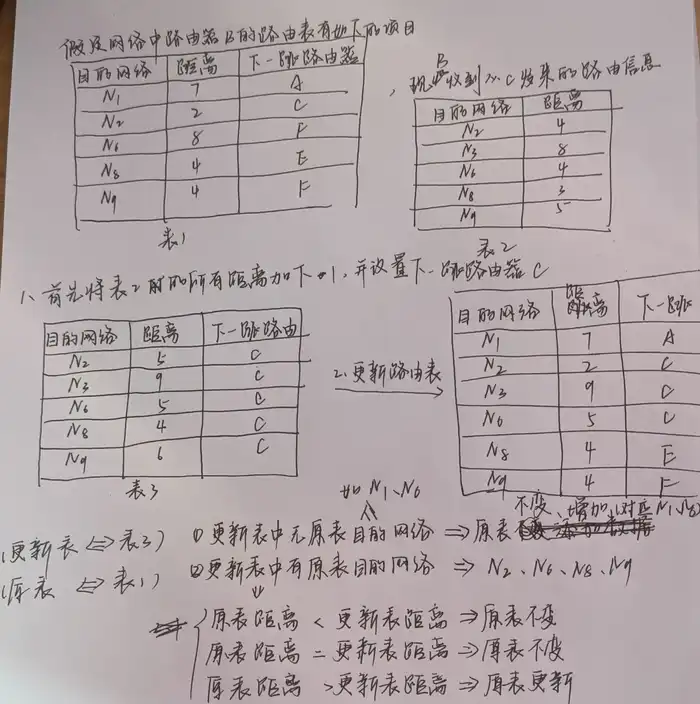 假设网络中路由器B的路由表有如下的项目
目的网络 距离 下一跳路由器
N1 7 A
N2 2 C
N6 8 F
N8 4 E
N9 4 F
表1
，现B收到从C发来的路由信息
目的网络 距离
N2 4
N3 8
N6 4
N8 3
N9 5
表2
1、首先将表2的所有距离加下1，并设置下一跳路由器C
目的网络 距离 下一跳路由
N2 5 C
N3 9 C
N6 5 C
N8 4 C
N9 6 C
表3
2.更新路由表
目的网络 距离 下一跳
N1 7 A
N2 2 C
N3 9 C
N6 5 C
N8 4 E
N9 4 F
(更新表 ⇔ 表3)
(原表 ⇔ 表1)
如N1、N6
①更新表中无原表目的网络 ⇒ 原表
不变、增加(对应N1、
②更新表中有原表目的网络 ⇒ N2、N6、N8、N9
原表距离 < 更新表距离 ⇒ 原表不变
原表距离 = 更新表距离 ⇒ 原表不变
原表距离 > 更新表距离 ⇒ 原表更新